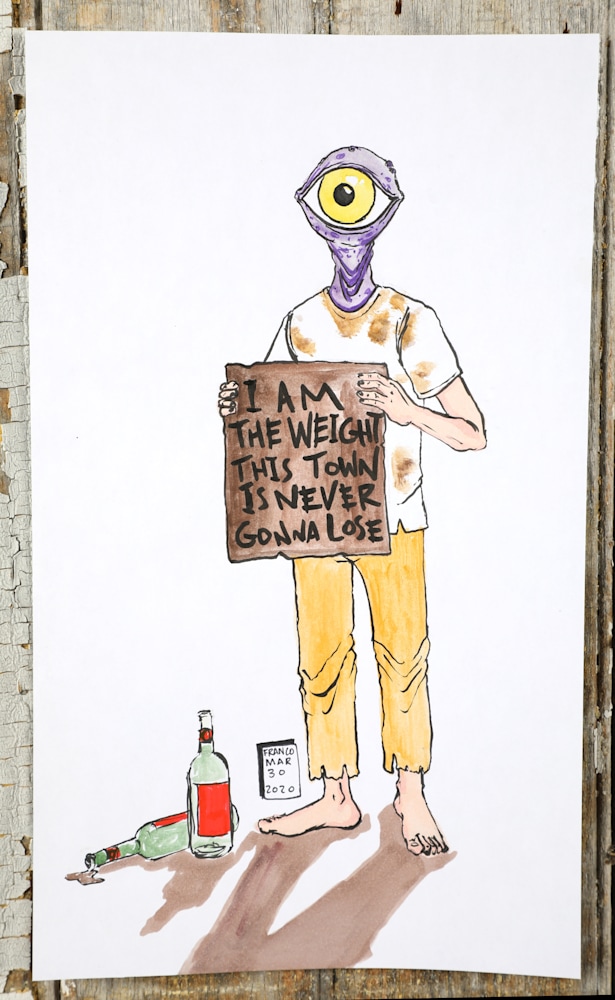 I AM
THE WEIGHT
THIS TOWN
IS NEVER
GONNA LOSE
FRANCO
MAR
30
2020